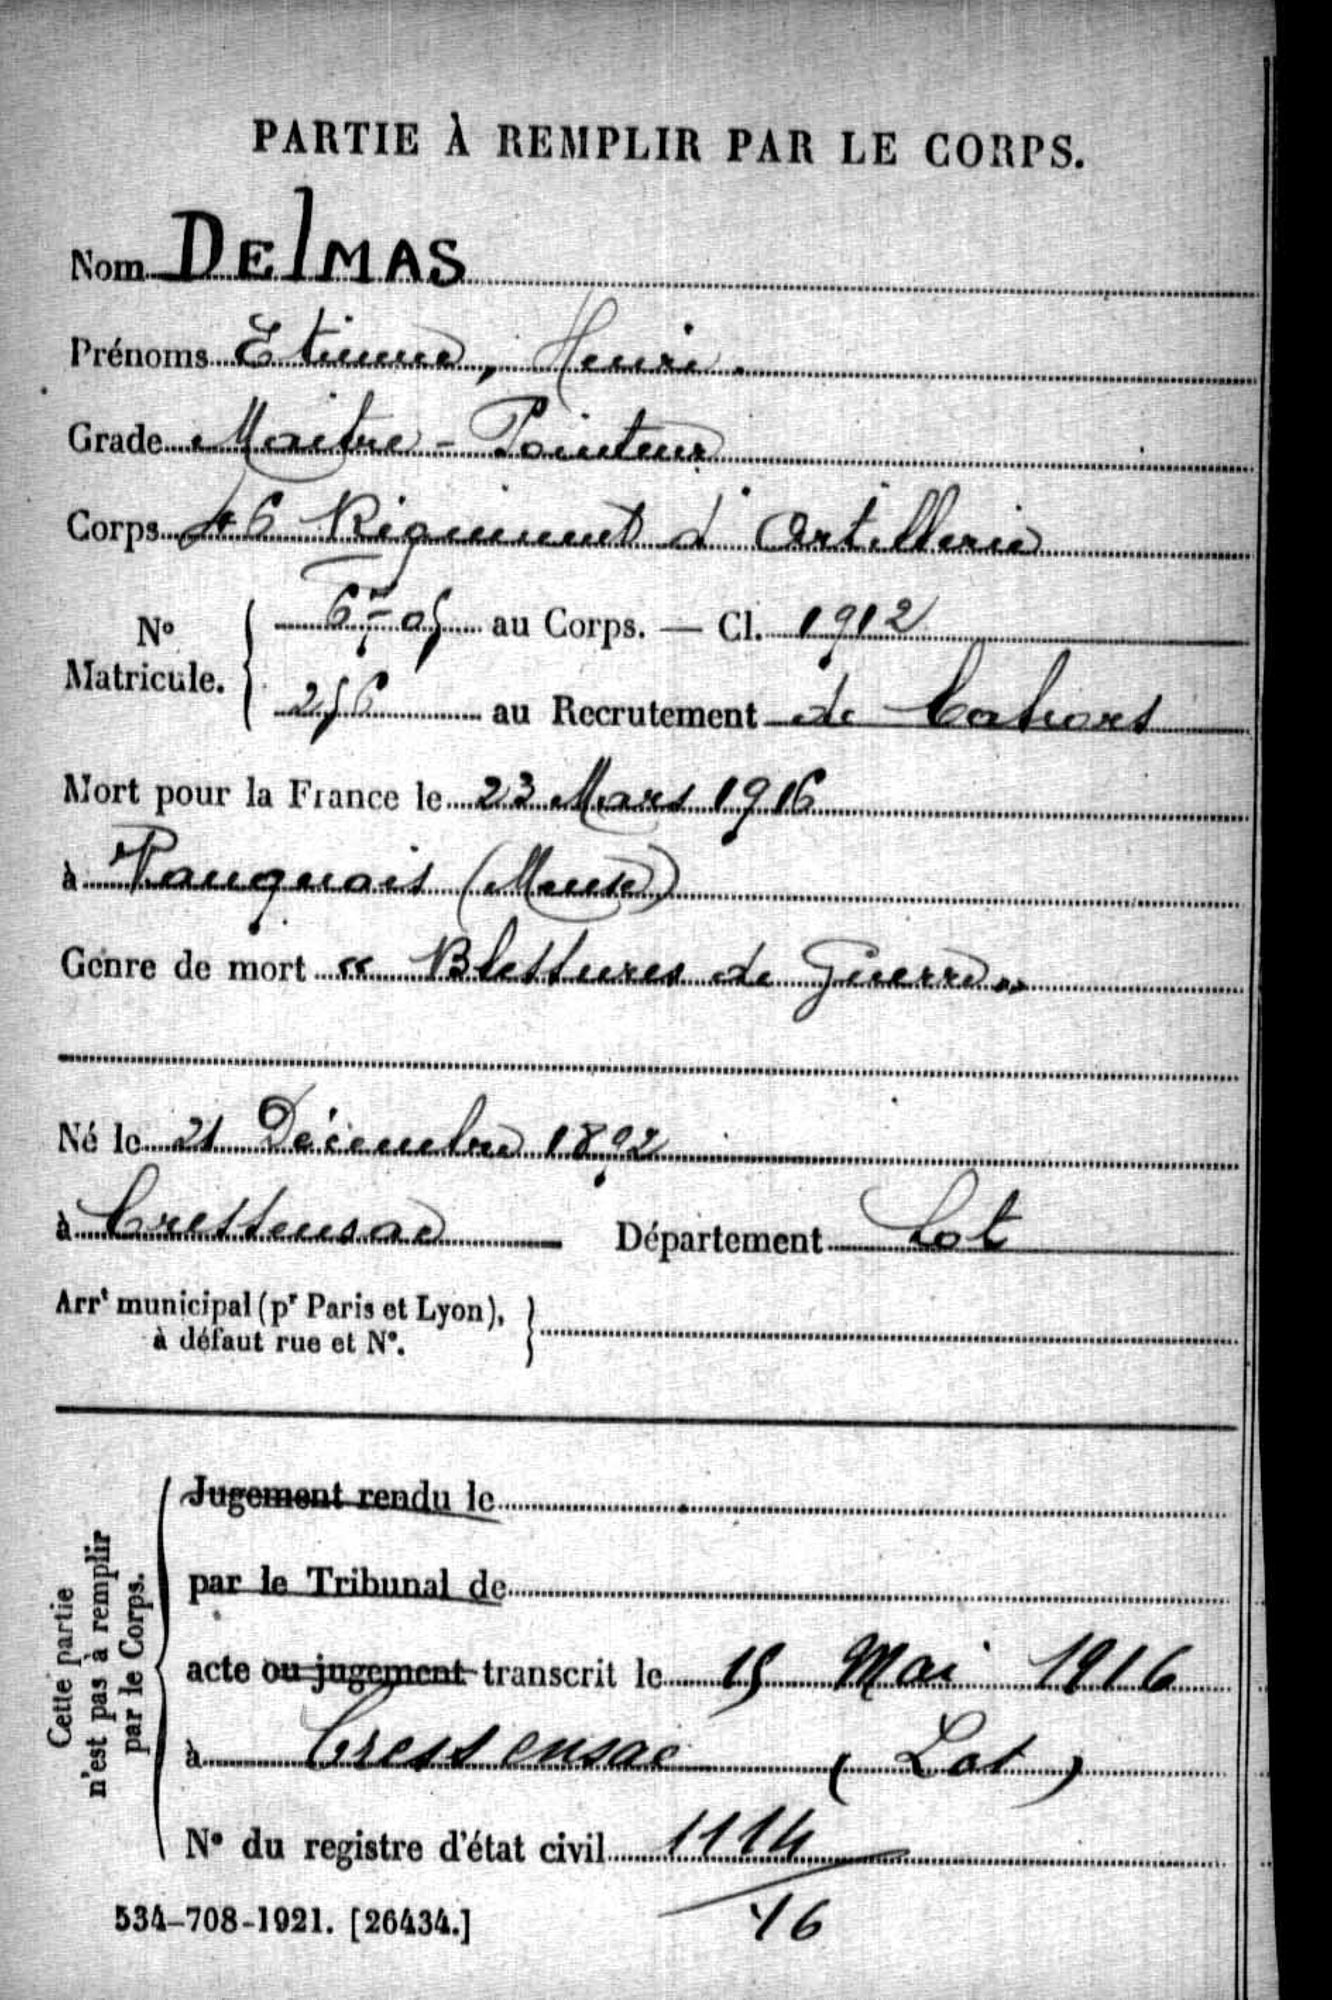 PARTIE À REMPLIR PAR LE CORPS.
Nom DElMAS
Prénoms Etienne, Henri.
Grade Maitre-Pointeur
Corps 46 Régiment d'Artillerie
N° Matricule. au Corps. — Cl. 1912
256 au Recrutement de Cahors
Mort pour la France le 23 Mars 1916
à Vauquois (Meuse)
Genre de mort « Blessures de Guerre »
Né le 21 Décembre 1892
à Cressensac Département Lot
Arrt municipal (pr Paris et Lyon),
à défaut rue et N°.
Cette partie
n'est pas à remplir
par le Corps.
Jugement rendu le
par le Tribunal de
acte ou jugement transcrit le 15 Mai 1916
à Cressensac (Lot)
N° du registre d'état civil 1114
534-708-1921. [26434.] 16